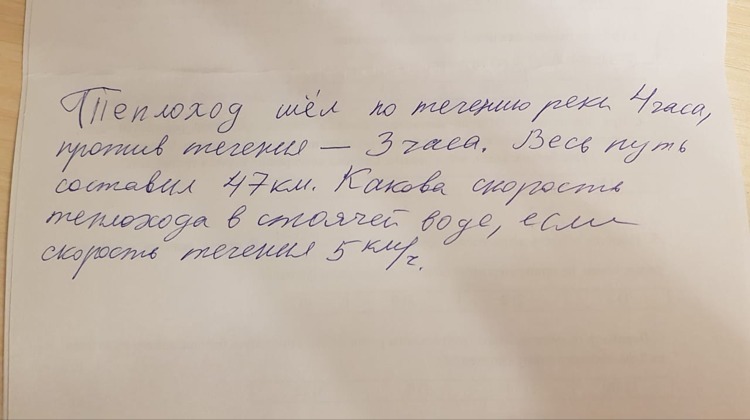 Теплоход шёл по течению реки 4 часа,
против течения – 3 часа. Весь путь
составил 47 км. Какова скорость
теплохода в стоячей воде, если
скорость течения 5 км/ч.